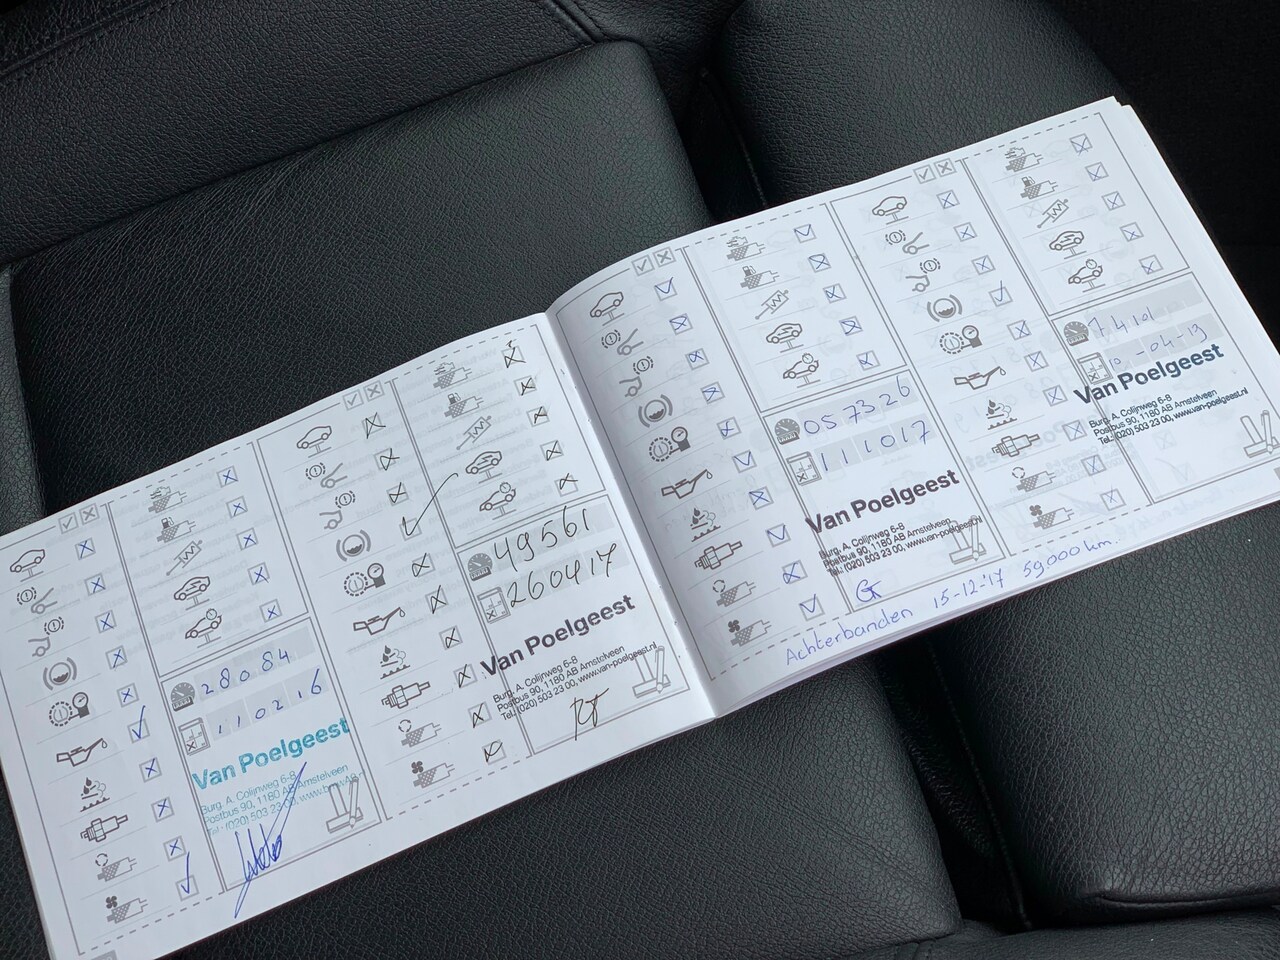 28084
110216
Van Poelgeest
Burg. A. Colijnweg 6-8
Postbus 90, 1180 AB Amstelveen
Tel.: (020) 503 23 00,
49561
260417
Van Poelgeest
Burg. A. Colijnweg 6-8
Postbus 90, 1180 AB Amstelveen
Tel.: (020) 503 23 00, www.van-poelgeest.nl
057326
111017
Van Poelgeest
Burg. A. Colijnweg 6-8
Postbus 90, 1180 AB Amstelveen
Tel.: (020) 503 23 00, www.van-poelgeest.nl
Achterbanden 15-12-'17 59000 km.
-04-
Van Poelgeest
Burg. A. Colijnweg 6-8
Postbus 90, 1180 AB Amstelveen
Tel.: (020) 503 23 00, www.van-poelgeest.nl